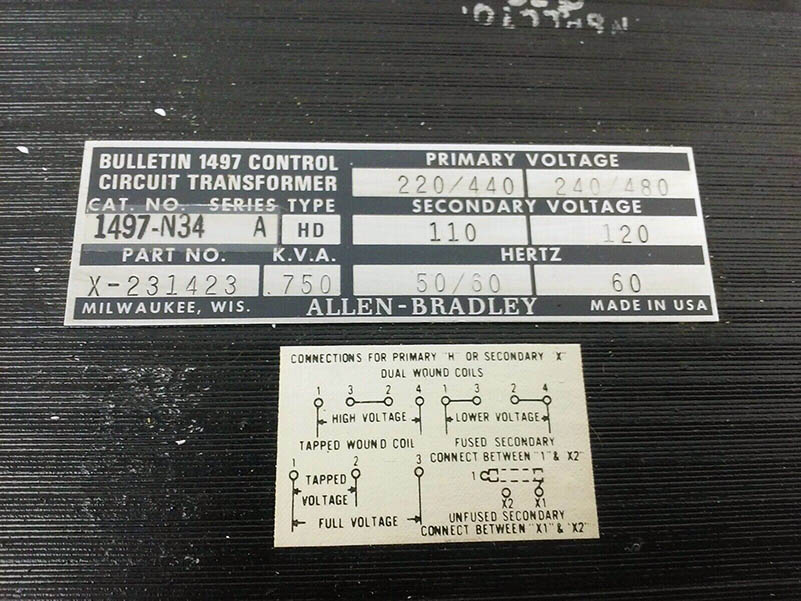 BULLETIN 1497 CONTROL
CIRCUIT TRANSFORMER
CAT. NO. SERIES TYPE
1497-N34 A HD
PART NO. K.V.A.
X-231423 .750
PRIMARY VOLTAGE
220/440 240/480
SECONDARY VOLTAGE
110 120
HERTZ
50/60 60
MILWAUKEE, WIS. ALLEN-BRADLEY MADE IN USA
CONNECTIONS FOR PRIMARY "H" OR SECONDARY "X"
DUAL WOUND COILS
1 3 2 4 1 3 2 4
HIGH VOLTAGE LOWER VOLTAGE
TAPPED WOUND COIL
1 2 3
TAPPED
VOLTAGE
FULL VOLTAGE
FUSED SECONDARY
CONNECT BETWEEN "1" & "X2"
1
X2 X1
UNFUSED SECONDARY
CONNECT BETWEEN "X1" & "X2"